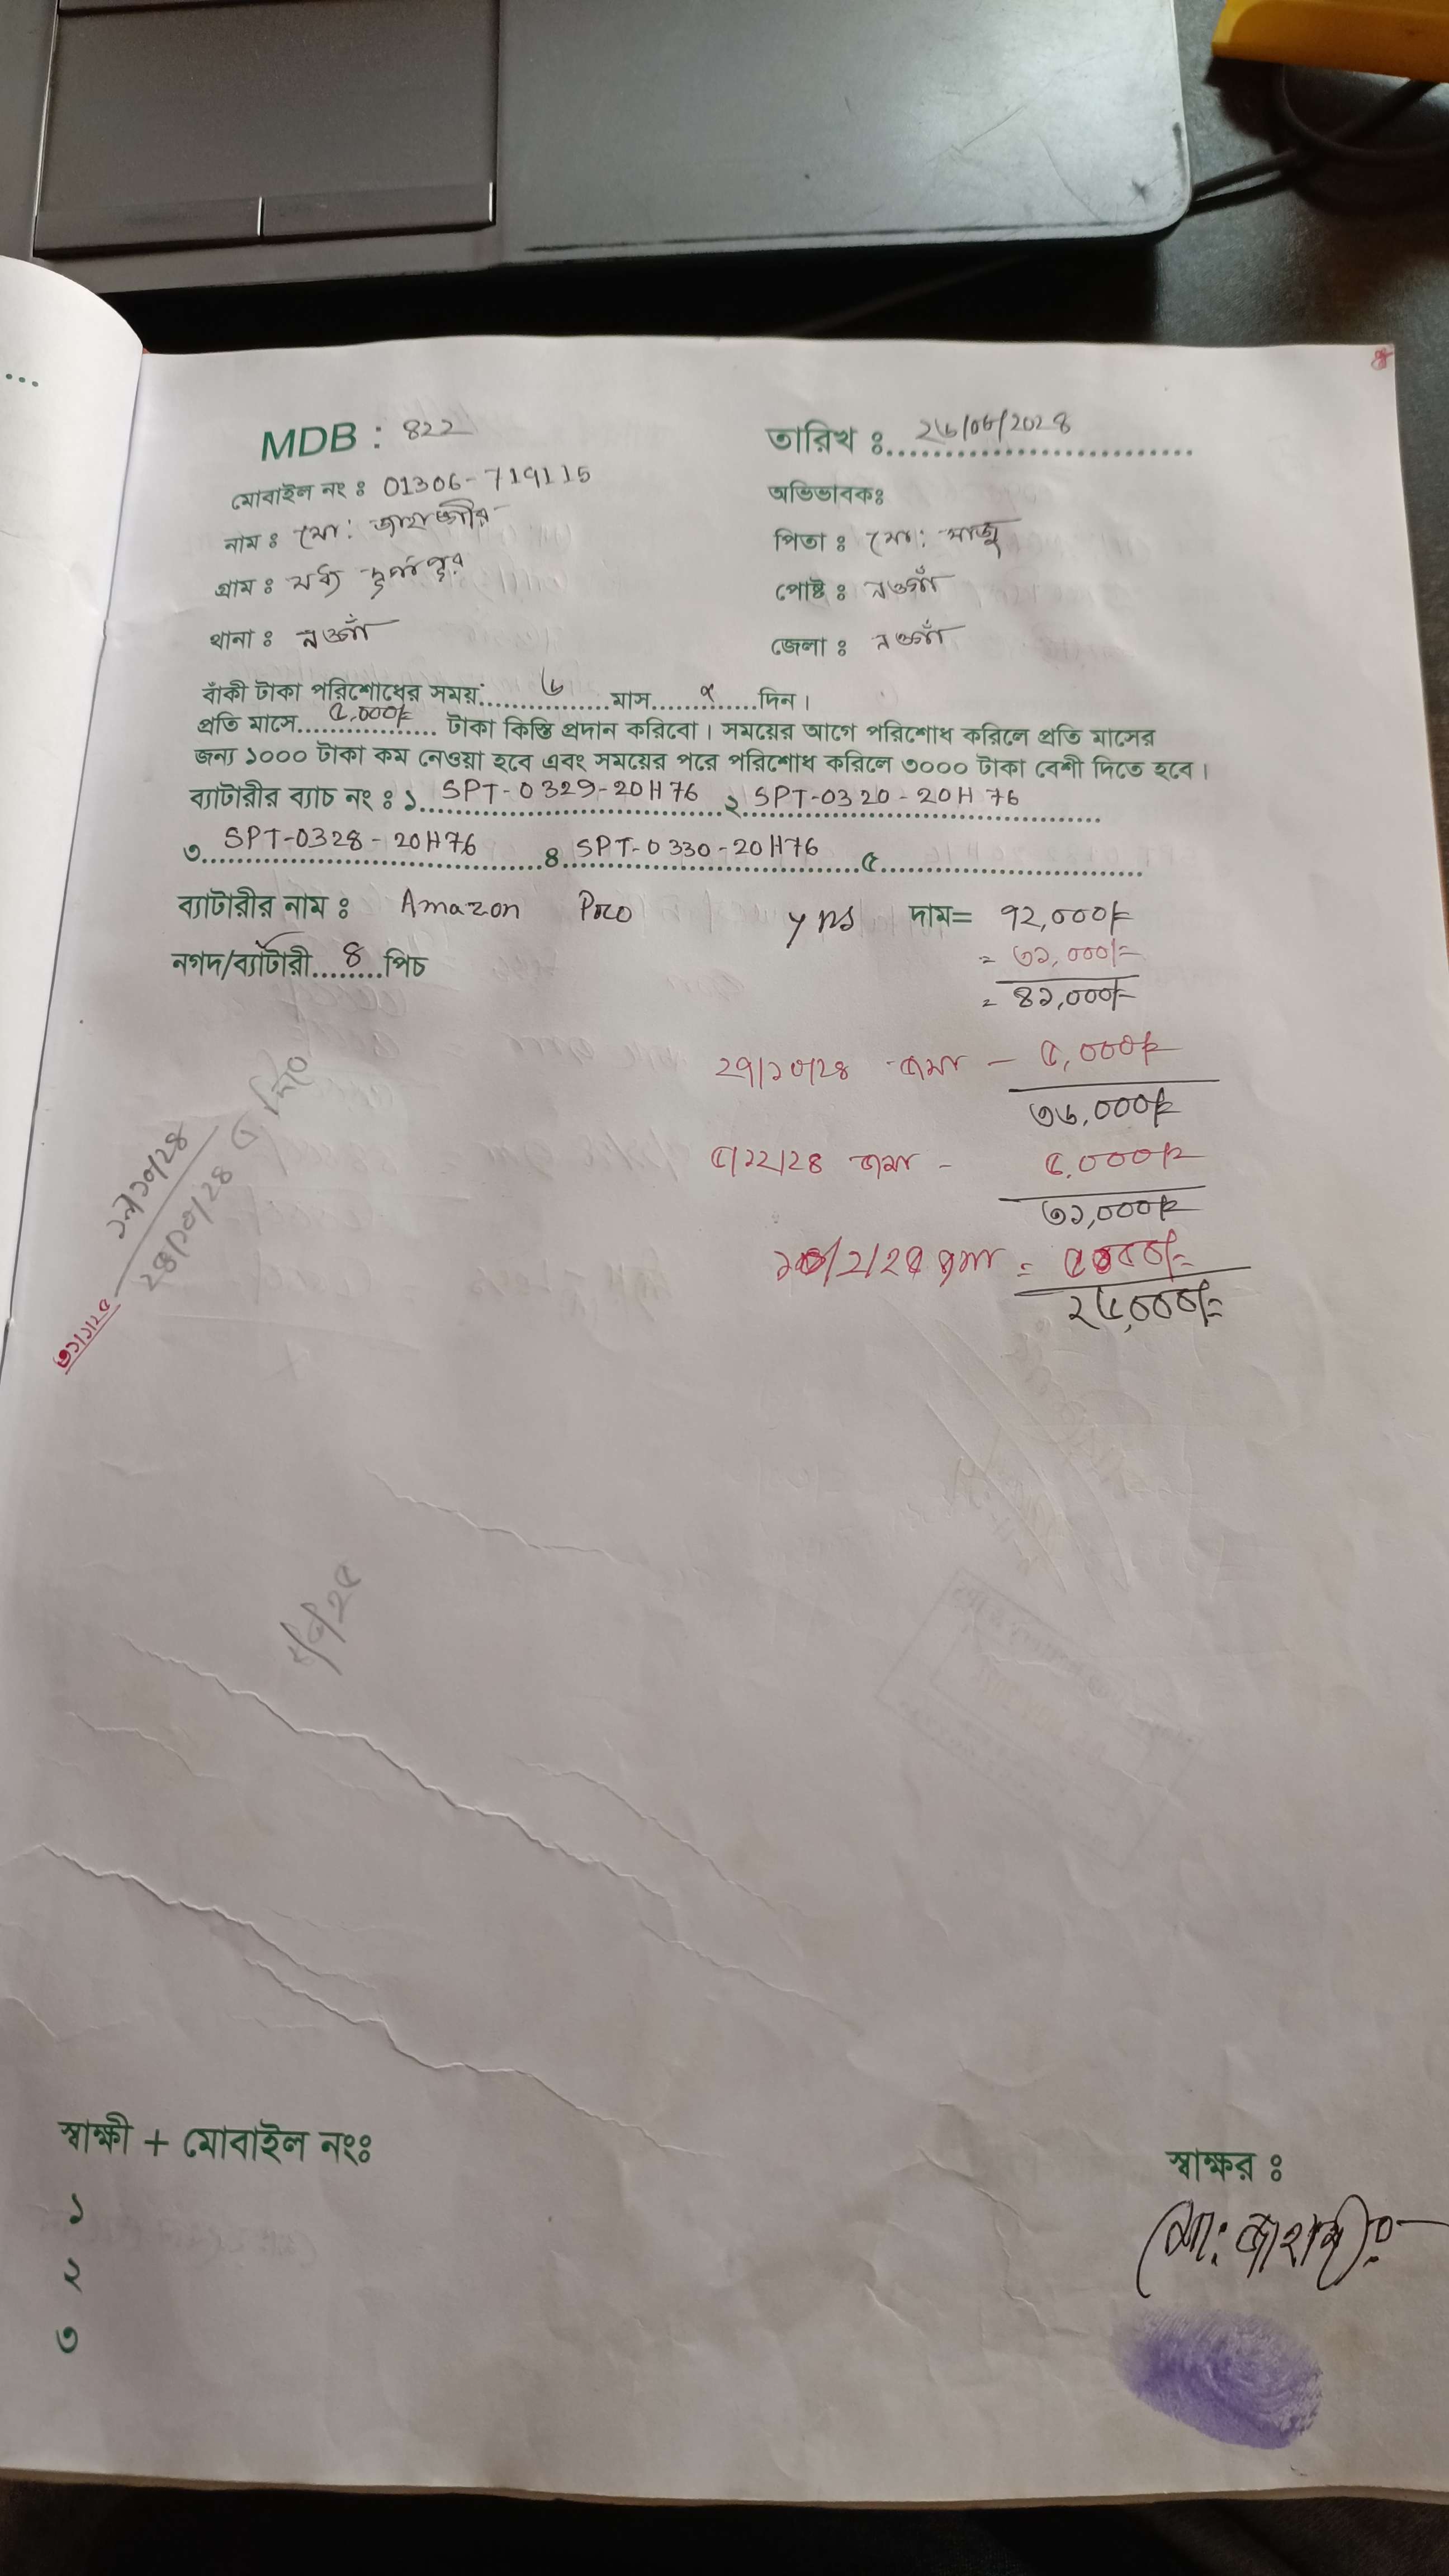 MDB : 822
তারিখ ঃ ২৬/০৮/২০২৪
মোবাইল নং ঃ 01306-719115
অভিভাবকঃ
নাম ঃ মো: জাহাঙ্গীর
পিতা ঃ মো: সাজু
গ্রাম ঃ মধ্য দুর্গাপুর
পোষ্ট ঃ নওগাঁ
থানা ঃ নওগাঁ
জেলা ঃ নওগাঁ
বাঁকী টাকা পরিশোধের সময়: ৬ মাস দিন।
প্রতি মাসে ৫,০০০/= টাকা কিস্তি প্রদান করিবো। সময়ের আগে পরিশোধ করিলে প্রতি মাসের
জন্য ১০০০ টাকা কম নেওয়া হবে এবং সময়ের পরে পরিশোধ করিলে ৩০০০ টাকা বেশী দিতে হবে।
ব্যাটারীর ব্যাচ নং ঃ ১. SPT-0329-20H76 ২. SPT-0320-20H76
৩. SPT-0328-20H76 ৪. SPT-0330-20H76 ৫.
ব্যাটারীর নাম ঃ Amazon Pro দাম= ৭২,০০০/=
= ৩১,০০০/=
নগদ/ব্যাটারী ৪ পিচ
= ৪১,০০০/=
২৭/১০/২৪ জমা – ৫,০০০/=
৩৬,০০০/=
৫/১২/২৪ জমা – ৫,০০০/=
৩১,০০০/=
জমা = ৫০০০/=
২৬,০০০/=
২৪/১০/২৪
স্বাক্ষী + মোবাইল নংঃ
১
২
৩
স্বাক্ষর ঃ
মো: জাহাঙ্গীর